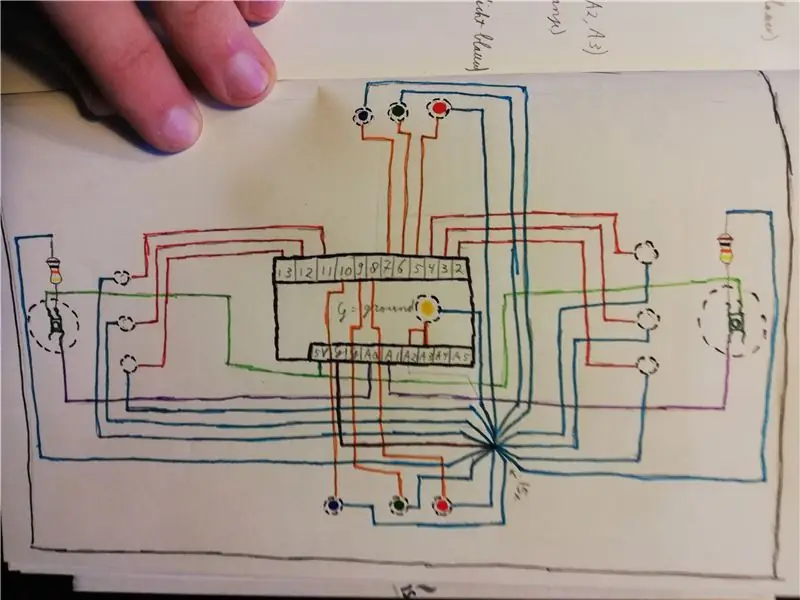 A2, A3)
13 12 11 10 9 8 7 6 5 4 3 2
G = ground
5V G G A0 A1 A2 A3 A4 A5
15x